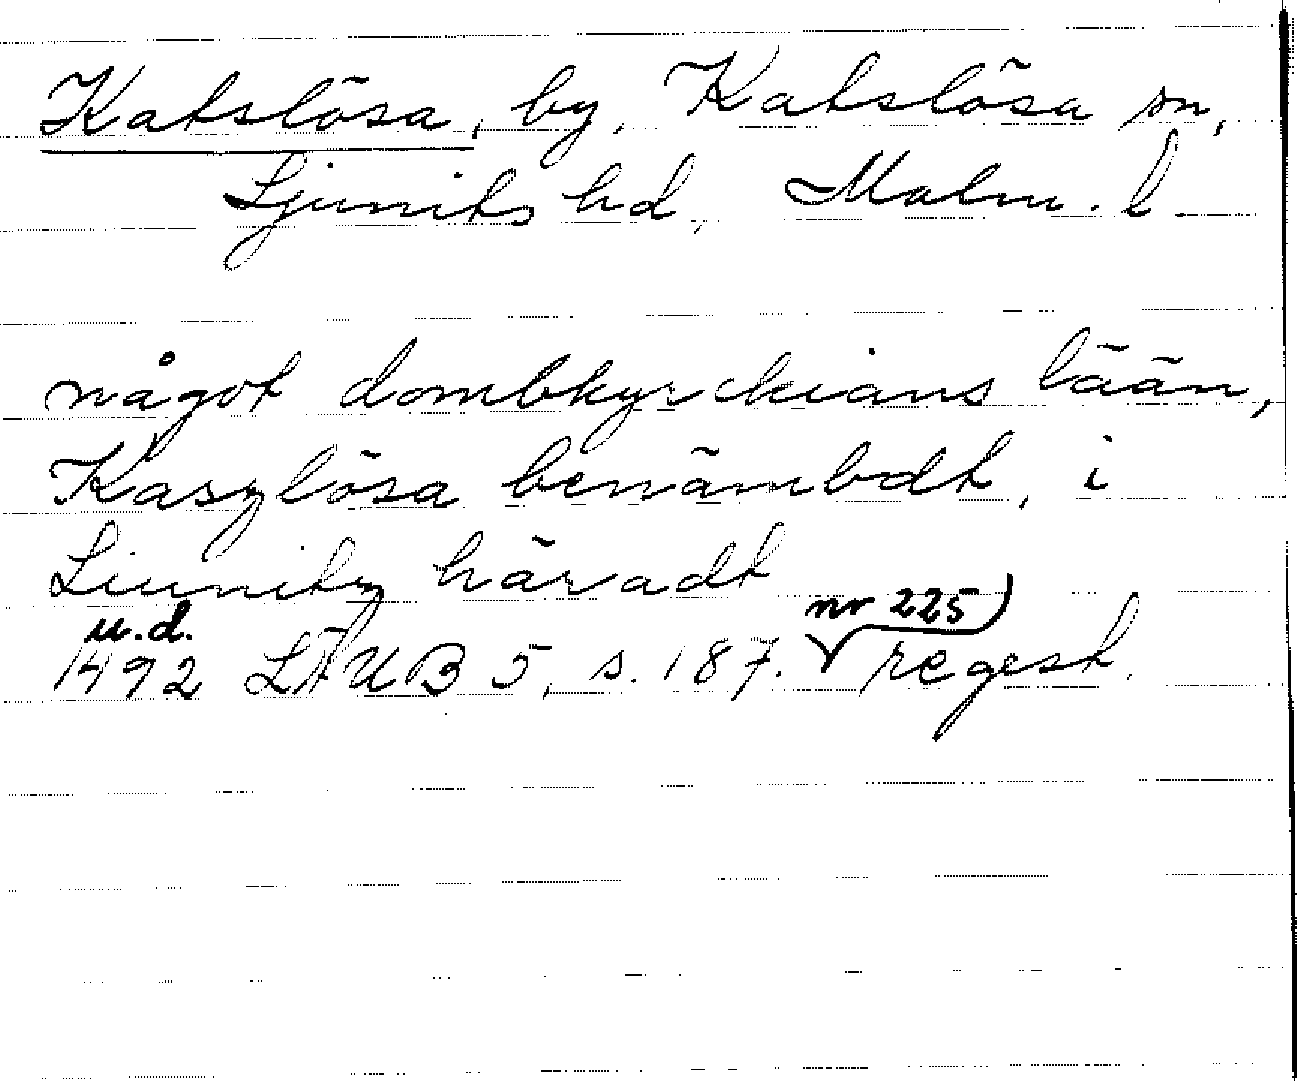 Katslösa, by, Katslösa sn,
Ljunits hd, Malm. l
något dombkyrckians lään,
Kaszlösa benämbdt, i
Liunitz häradt
u.d. nr 225
1492 LÄUB 5, s. 187. regest.